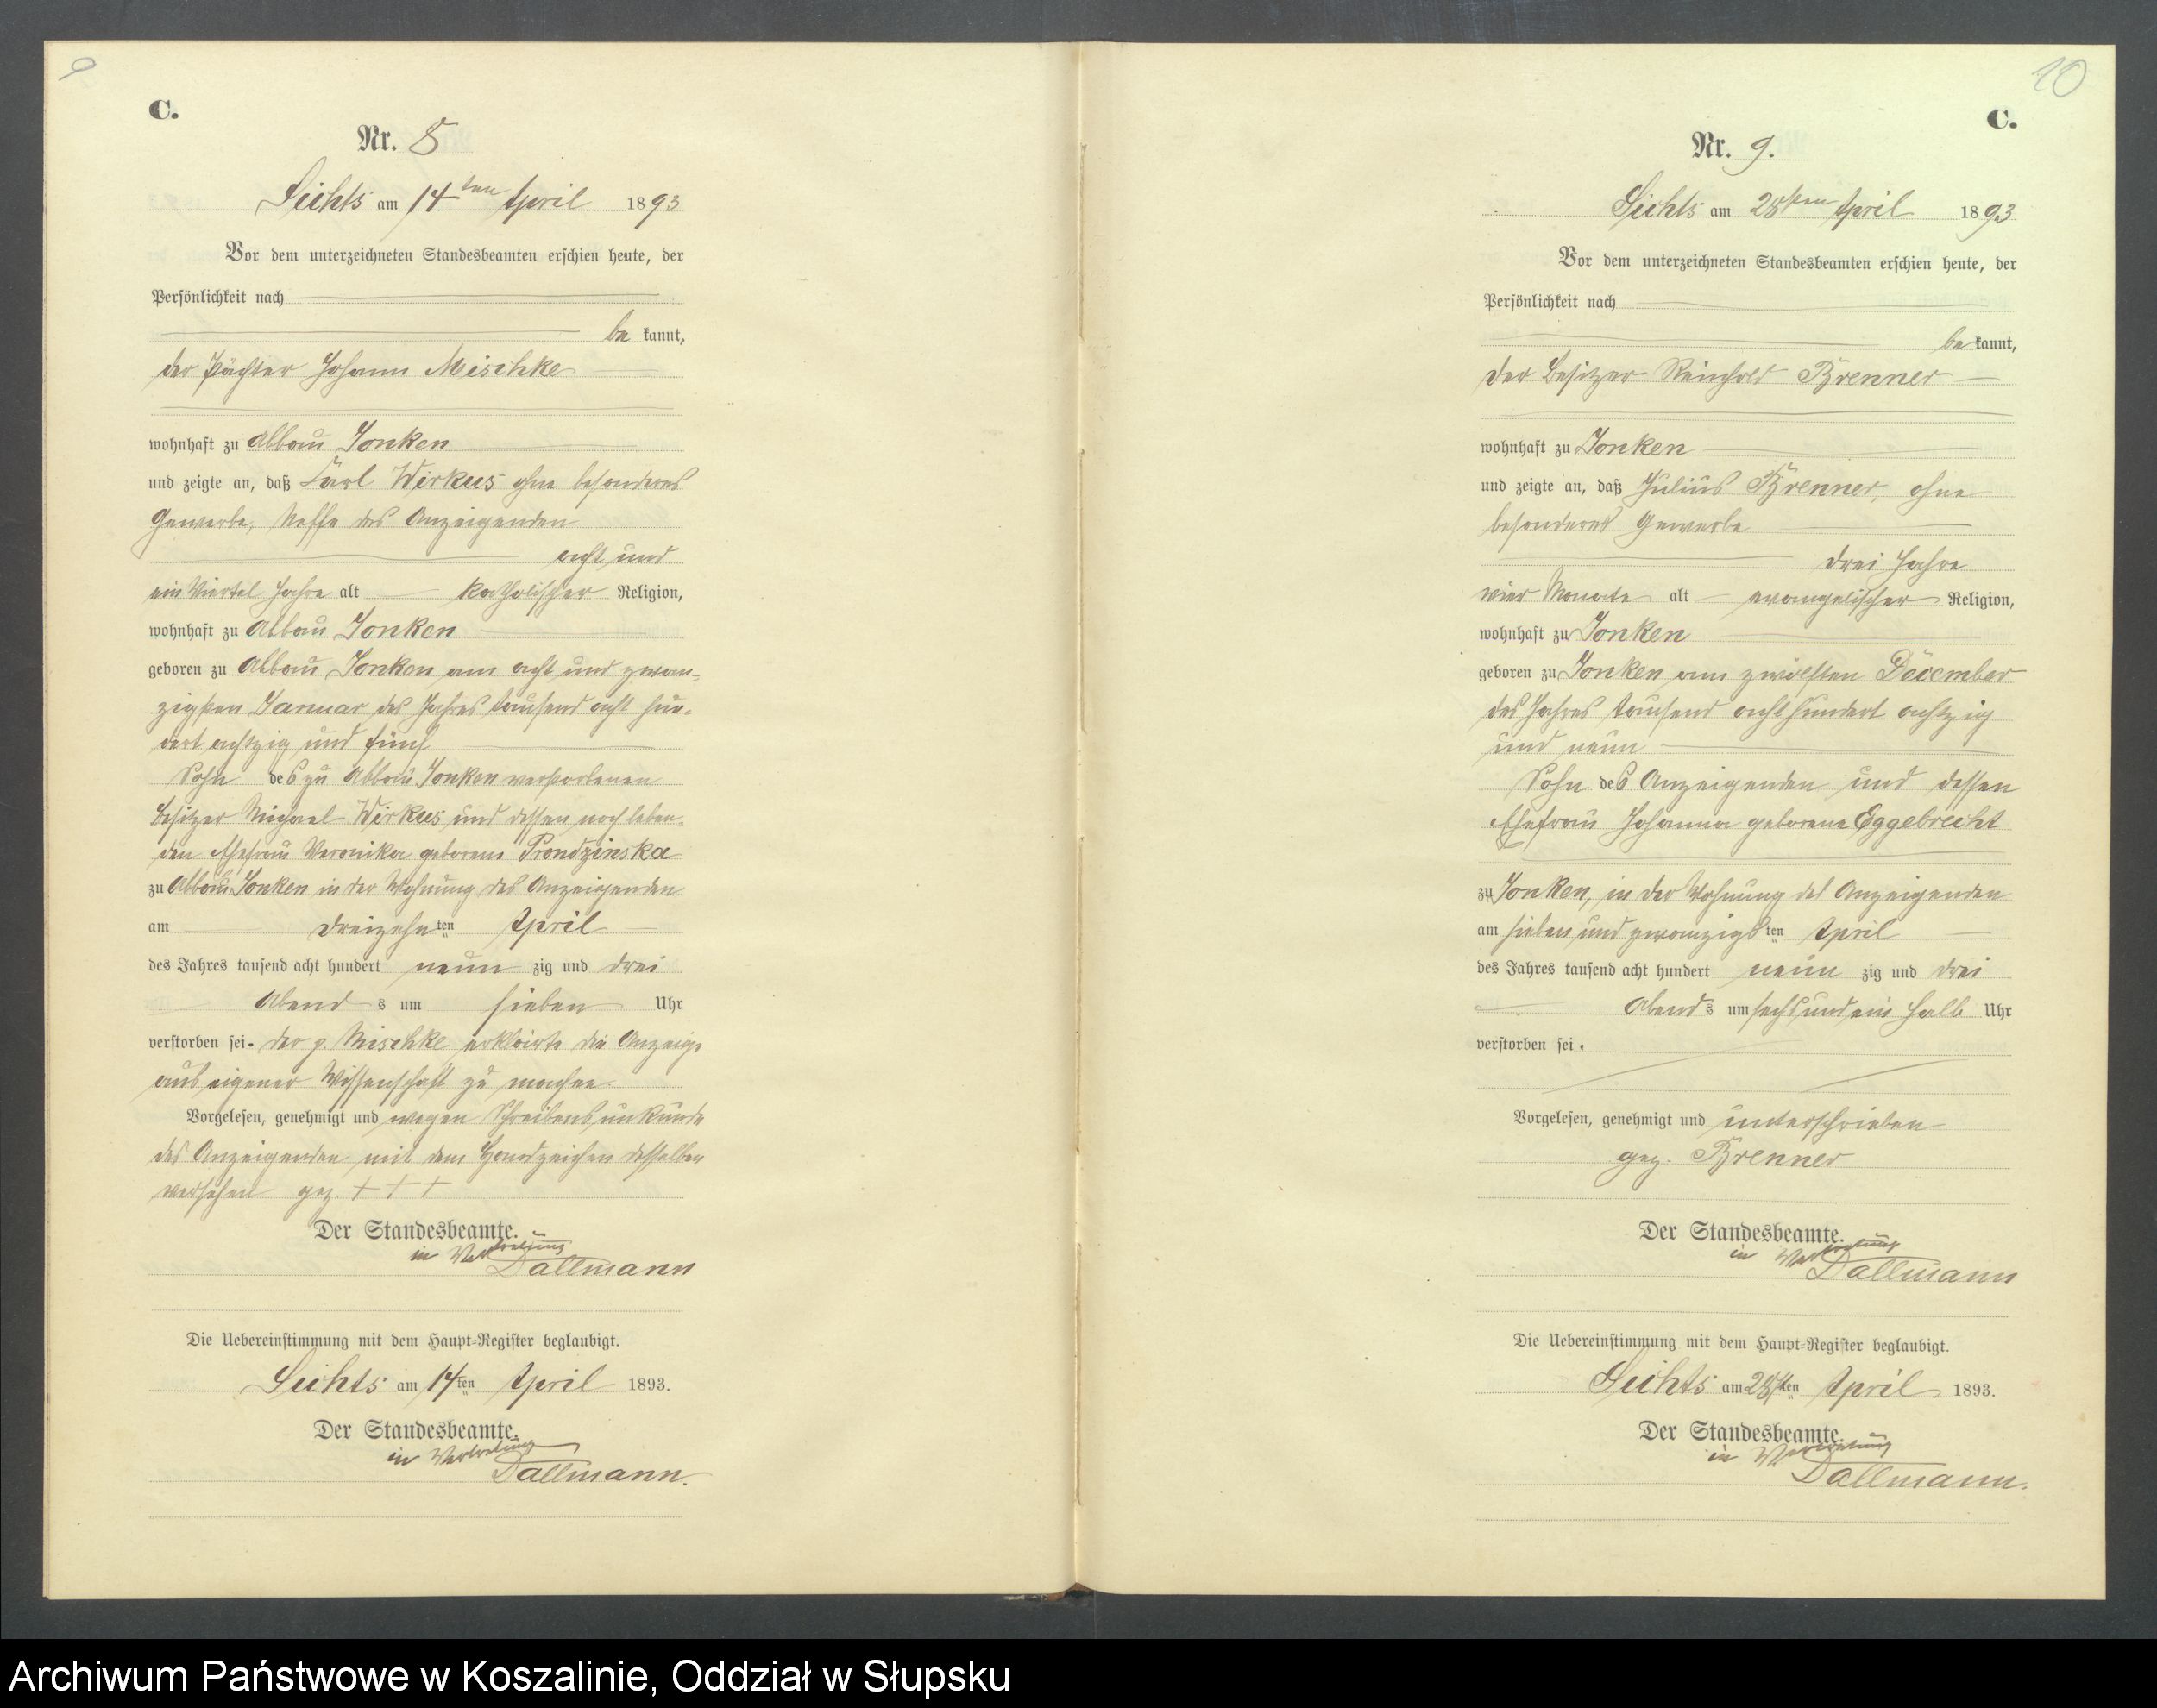 9
C.
Nr. 8
Lichts am 14ten April 1893
Vor dem unterzeichneten Standesbeamten erschien heute, der
Persönlichkeit nach
be kannt,
der Pächter Johann Mischke
wohnhaft zu Abbau Jonken
und zeigte an, daß Carl Wirkus ohne besonderes
Gewerbe, Neffe des Anzeigenden
acht und
ein Viertel Jahre alt katholischer Religion,
wohnhaft zu Abbau Jonken
geboren zu Abbau Jonken am acht und zwan-
zigsten Januar des Jahres tausend acht hun-
dert achtzig und fünf
Sohn des zu Abbau Jonken verstorbenen
Besitzer Michael Wirkus und dessen noch leben-
den Ehefrau Veronika geborene Prondzinska
zu Abbau Jonken in der Wohnung des Anzeigenden
am dreizehn ten April
des Jahres tausend acht hundert neun zig und drei
Abend s um sieben Uhr
verstorben sei. der p. Mischke erklärte die Anzeige
aus eigener Wissenschaft zu machen.
Vorgelesen, genehmigt und wegen Schreibensunkunde
des Anzeigenden mit dem Handzeichen desselben
versehen gez. + + +
Der Standesbeamte.
in Vertretung
Dallmann
Die Uebereinstimmung mit dem Haupt-Register beglaubigt.
Lichts am 14ten April 1893.
Der Standesbeamte.
in Vertretung
Dallmann.
10
C.
Nr. 9.
Lichts am 28ten April 1893
Vor dem unterzeichneten Standesbeamten erschien heute, der
Persönlichkeit nach
be kannt,
der Besitzer Reinhold Brenner
wohnhaft zu Jonken
und zeigte an, daß Julius Brenner, ohne
besonderes Gewerbe
drei Jahre
vier Monate alt evangelischer Religion,
wohnhaft zu Jonken
geboren zu Jonken am zwölften December
des Jahres tausend acht hundert achtzig
und neun
Sohn des Anzeigenden und dessen
Ehefrau Johanna geborene Eggebrecht
zu Jonken, in der Wohnung des Anzeigenden
am sieben und zwanzigs ten April
des Jahres tausend acht hundert neun zig und drei
Abend s um sechs und ein halb Uhr
verstorben sei.
Vorgelesen, genehmigt und unterschrieben
gez. Brenner
Der Standesbeamte.
in Vertretung
Dallmann
Die Uebereinstimmung mit dem Haupt-Register beglaubigt.
Lichts am 28ten April 1893.
Der Standesbeamte.
in Vertretung
Dallmann.
Archiwum Państwowe w Koszalinie, Oddział w Słupsku